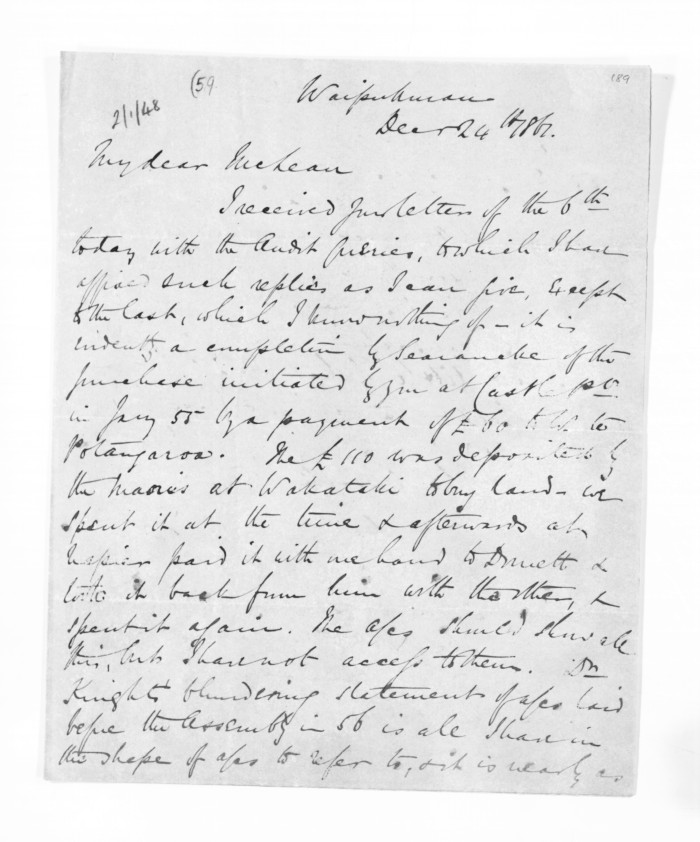 (59
189
2/1/48
Waipukurau
Decr 24th 1861.
My dear McLean
I received your letters of the 6th
today with the Audit queries, to which I have
affixed such replies as I can give, except
to the last, which I know nothing of - it is
evidently a completion by Searancke of the
purchase initiated by you at Castle Pt.
in Jany 55 by a payment of £60 to
Potangaroa. The £110 was deposited by
the Maoris at Wakataki to buy land - we
spent it at the time & afterwards at
Napier paid it with one hand to Domett &
took it back from him with the other, &
spent it again. The a/cs should show all
this, but I have not access to them. Dr
Knight's blundering statement of a/cs laid
before the Assembly in 56 is all I have in
the shape of a/cs to refer to, & it is nearly as